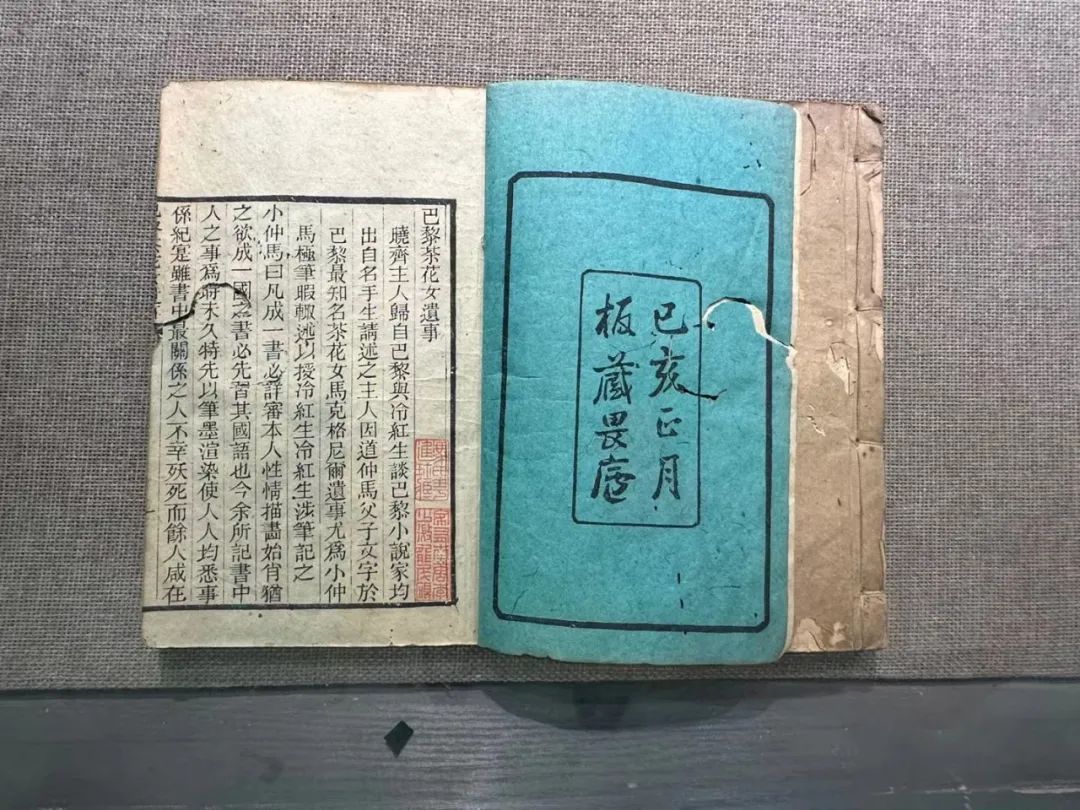 己亥正月
板藏畏廬
巴黎茶花女遺事
曉齊主人歸自巴黎與冷紅生談巴黎小說家均
出自名手生請述之主人因道仲馬父子文字於
巴黎最知名茶花女馬克格尼爾遺事尤爲小仲
馬極筆暇輙述以授冷紅生冷紅生涉筆記之
小仲馬曰凡成一書必詳審本人性情描畵始肖猶
之欲成一國之書必先習其國語也今余所記書中
人之事爲時未久特先以筆墨渲染使人人均悉事
係紀寔雖書中最關係之人不幸殀死而餘人咸在